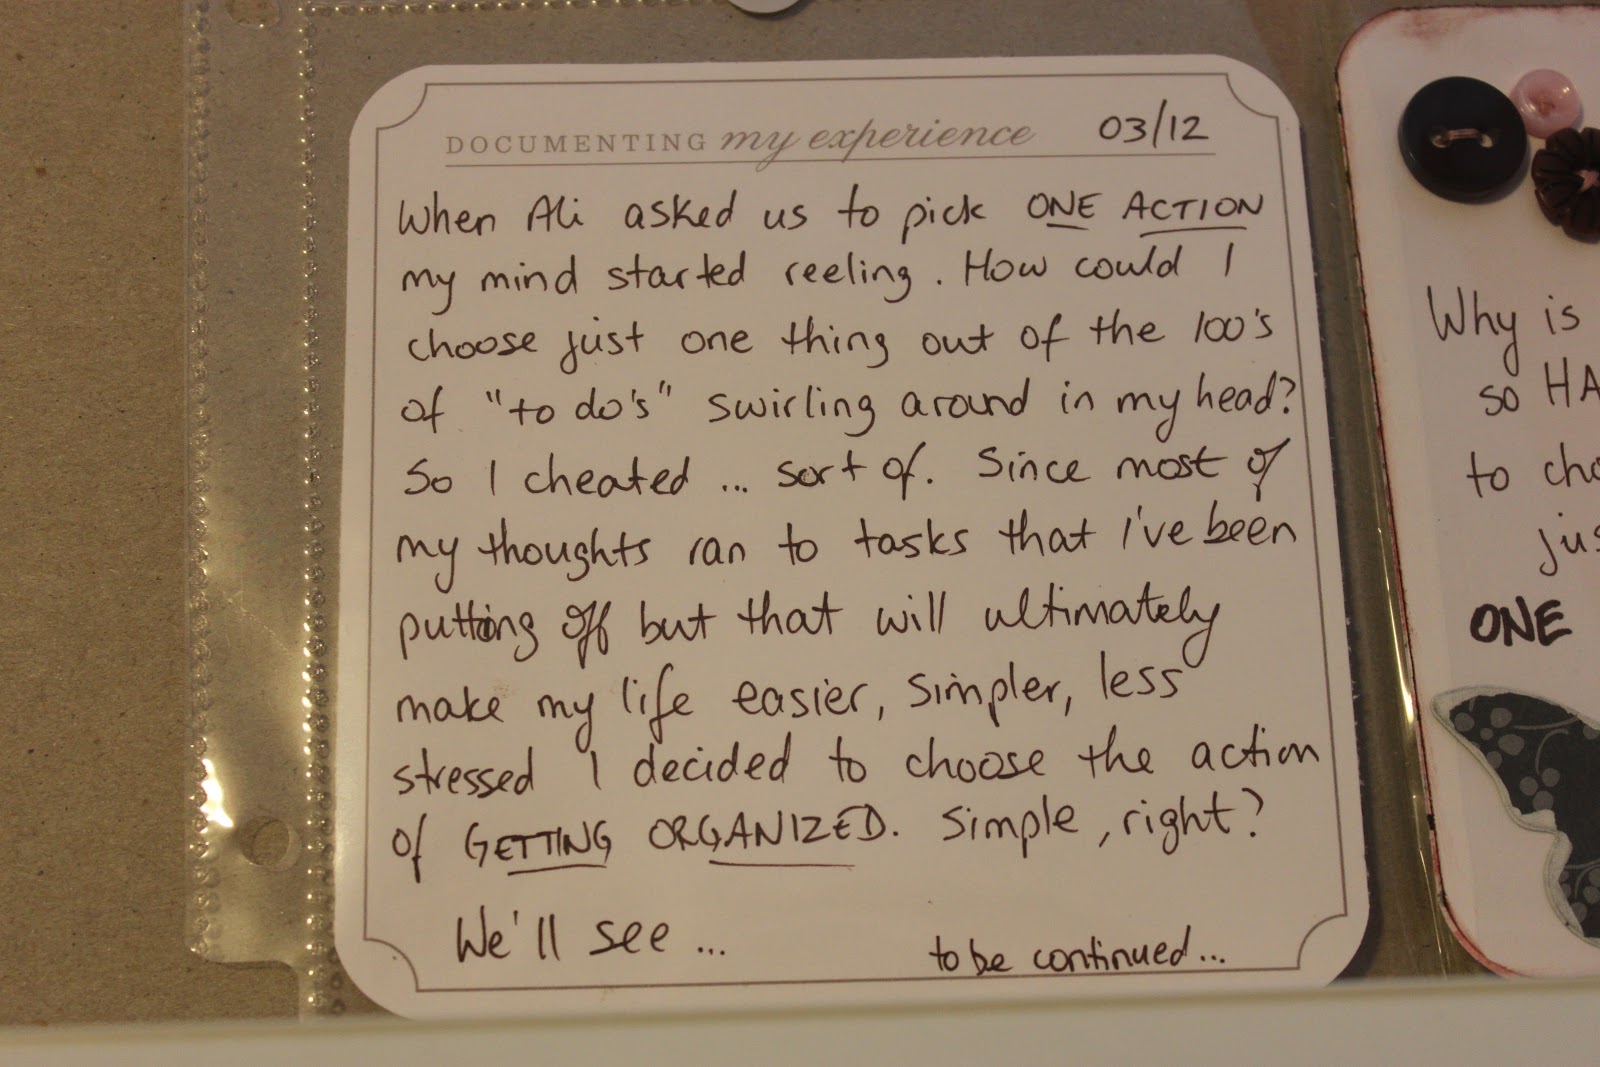 DOCUMENTING my experience 03/12
When Ali asked us to pick ONE ACTION
my mind started reeling. How could I
choose just one thing out of the 100's
of "to do's" swirling around in my head?
So I cheated ... sort of. Since most of
my thoughts ran to tasks that I've been
putting off but that will ultimately
make my life easier, simpler, less
stressed I decided to choose the action
of GETTING ORGANIZED. Simple, right?
We'll see ...
to be continued...
Why is
so
to
ONE